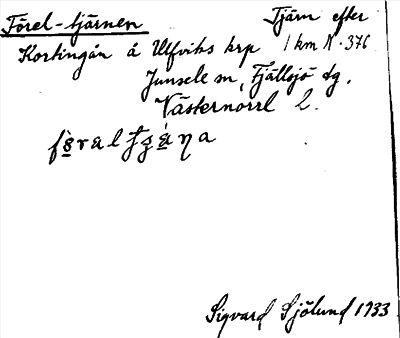 Förel-tjärnen Tjärn efter
Kortingån å Ulfviks krp 1 km N. 376
Junsele sn, Fjällsjö tg,
Västernorrl l.
Sigvard Sjölund 1933